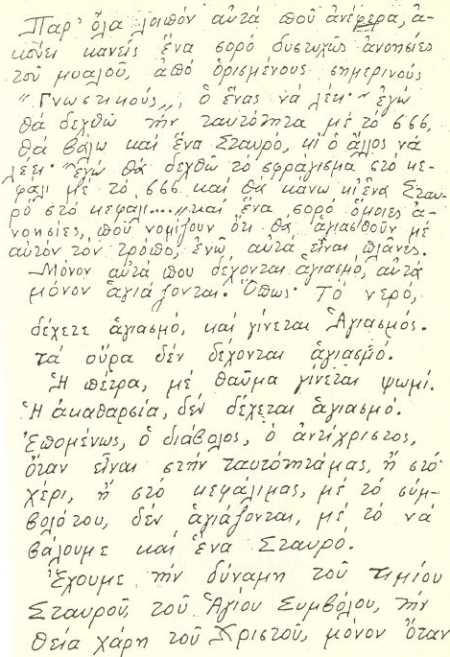 Παρ' ὅλα λοιπόν αὐτά πού ἀνέφερα, ἀ-
κούει κανείς ἕνα σορό δυστυχῶς ἀνοησίες
τοῦ μυαλοῦ, ἀπό ὁρισμένους σημερινούς
"Γνωστικούς", ὁ ἕνας νά λέει· "ἐγώ
θά δεχθῶ τήν ταυτότητα μέ τό 666,
θά βάλω καί ἕνα Σταυρό, κι ὁ ἄλλος νά
λέει· "ἐγώ θά δεχθῶ τό σφράγισμα στό κε-
φάλι μέ τό 666 καί θά κάνω κι ἕνα Σταυ-
ρό στό κεφάλι...." καί ἕνα σορό ὅμοιες ἀ-
νοησίες, πού νομίζουν ὅτι θά ἁγιασθοῦν μέ
αὐτόν τόν τρόπο, ἐνῶ αὐτά εἶναι πλάνες.
Μόνον αὐτά που δέχονται ἁγιασμό, αὐτά
μόνον ἁγιάζονται. Ὅπως· Τό νερό,
δέχετε ἁγιασμό, καί γίνεται Ἁγιασμός.
τά οὖρα δέν δέχονται ἁγιασμό.
Ἡ πέτρα, μέ θαῦμα γίνεται ψωμί.
Ἡ ἀκαθαρσία, δέν δέχεται ἁγιασμό.
Ἑπομένως, ὁ διάβολος, ὁ ἀντίχριστος,
ὅταν εἶναι στήν ταυτότητάμας, ἤ στό
χέρι, ἤ στό κεφάλιμας, μέ τό σύμ-
βολότου, δέν ἁγιάζονται, μέ τό νά
βάλουμε καί ἕνα Σταυρό.
Ἔχουμε τήν δύναμη τοῦ τιμίου
Σταυροῦ, τοῦ Ἁγίου Συμβόλου, τήν
θεία χάρη τοῦ Χριστοῦ, μόνον ὅταν